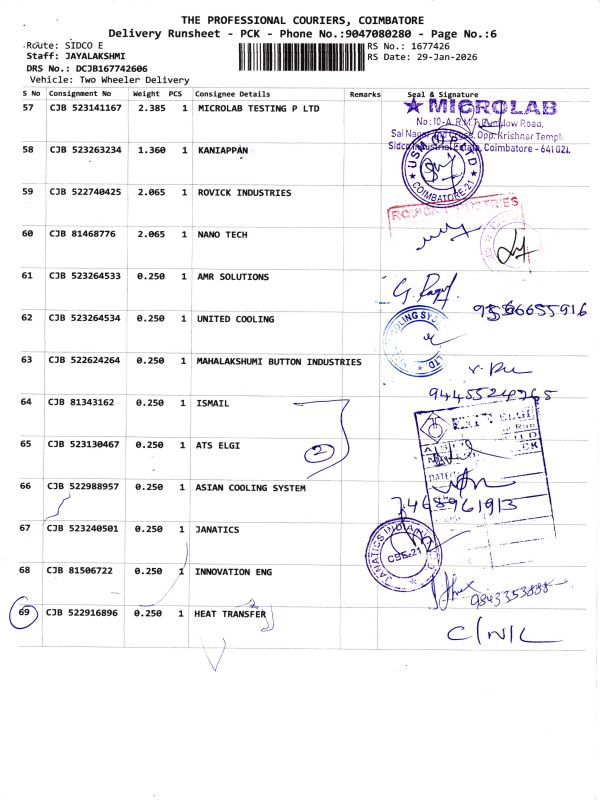 THE PROFESSIONAL COURIERS, COIMBATORE
Delivery Runsheet - PCK - Phone No.:9047080280 - Page No.:6
Route: SIDCO E
Staff: JAYALAKSHMI
DRS No.: DCJB167742606
Vehicle: Two Wheeler Delivery
RS No.: 1677426
RS Date: 29-Jan-2026
S No Consignment No Weight PCS Consignee Details Remarks Seal & Signature
57 CJB 523141167 2.385 1 MICROLAB TESTING P LTD
★ MICROLAB
Sidco Industrial Estate, Coimbatore - 641 021.
58 CJB 523263234 1.360 1 KANIAPPAN
COIMBATORE-21
59 CJB 522740425 2.065 1 ROVICK INDUSTRIES
60 CJB 81468776 2.065 1 NANO TECH
61 CJB 523264533 0.250 1 AMR SOLUTIONS
62 CJB 523264534 0.250 1 UNITED COOLING
63 CJB 522624264 0.250 1 MAHALAKSHUMI BUTTON INDUSTRIES
64 CJB 81343162 0.250 1 ISMAIL
65 CJB 523130467 0.250 1 ATS ELGI
2
66 CJB 522988957 0.250 1 ASIAN COOLING SYSTEM
7468961913
67 CJB 523240501 0.250 1 JANATICS
CBE-21
68 CJB 81506722 0.250 1 INNOVATION ENG
9843353888
69 CJB 522916896 0.250 1 HEAT TRANSFER
C/N/L